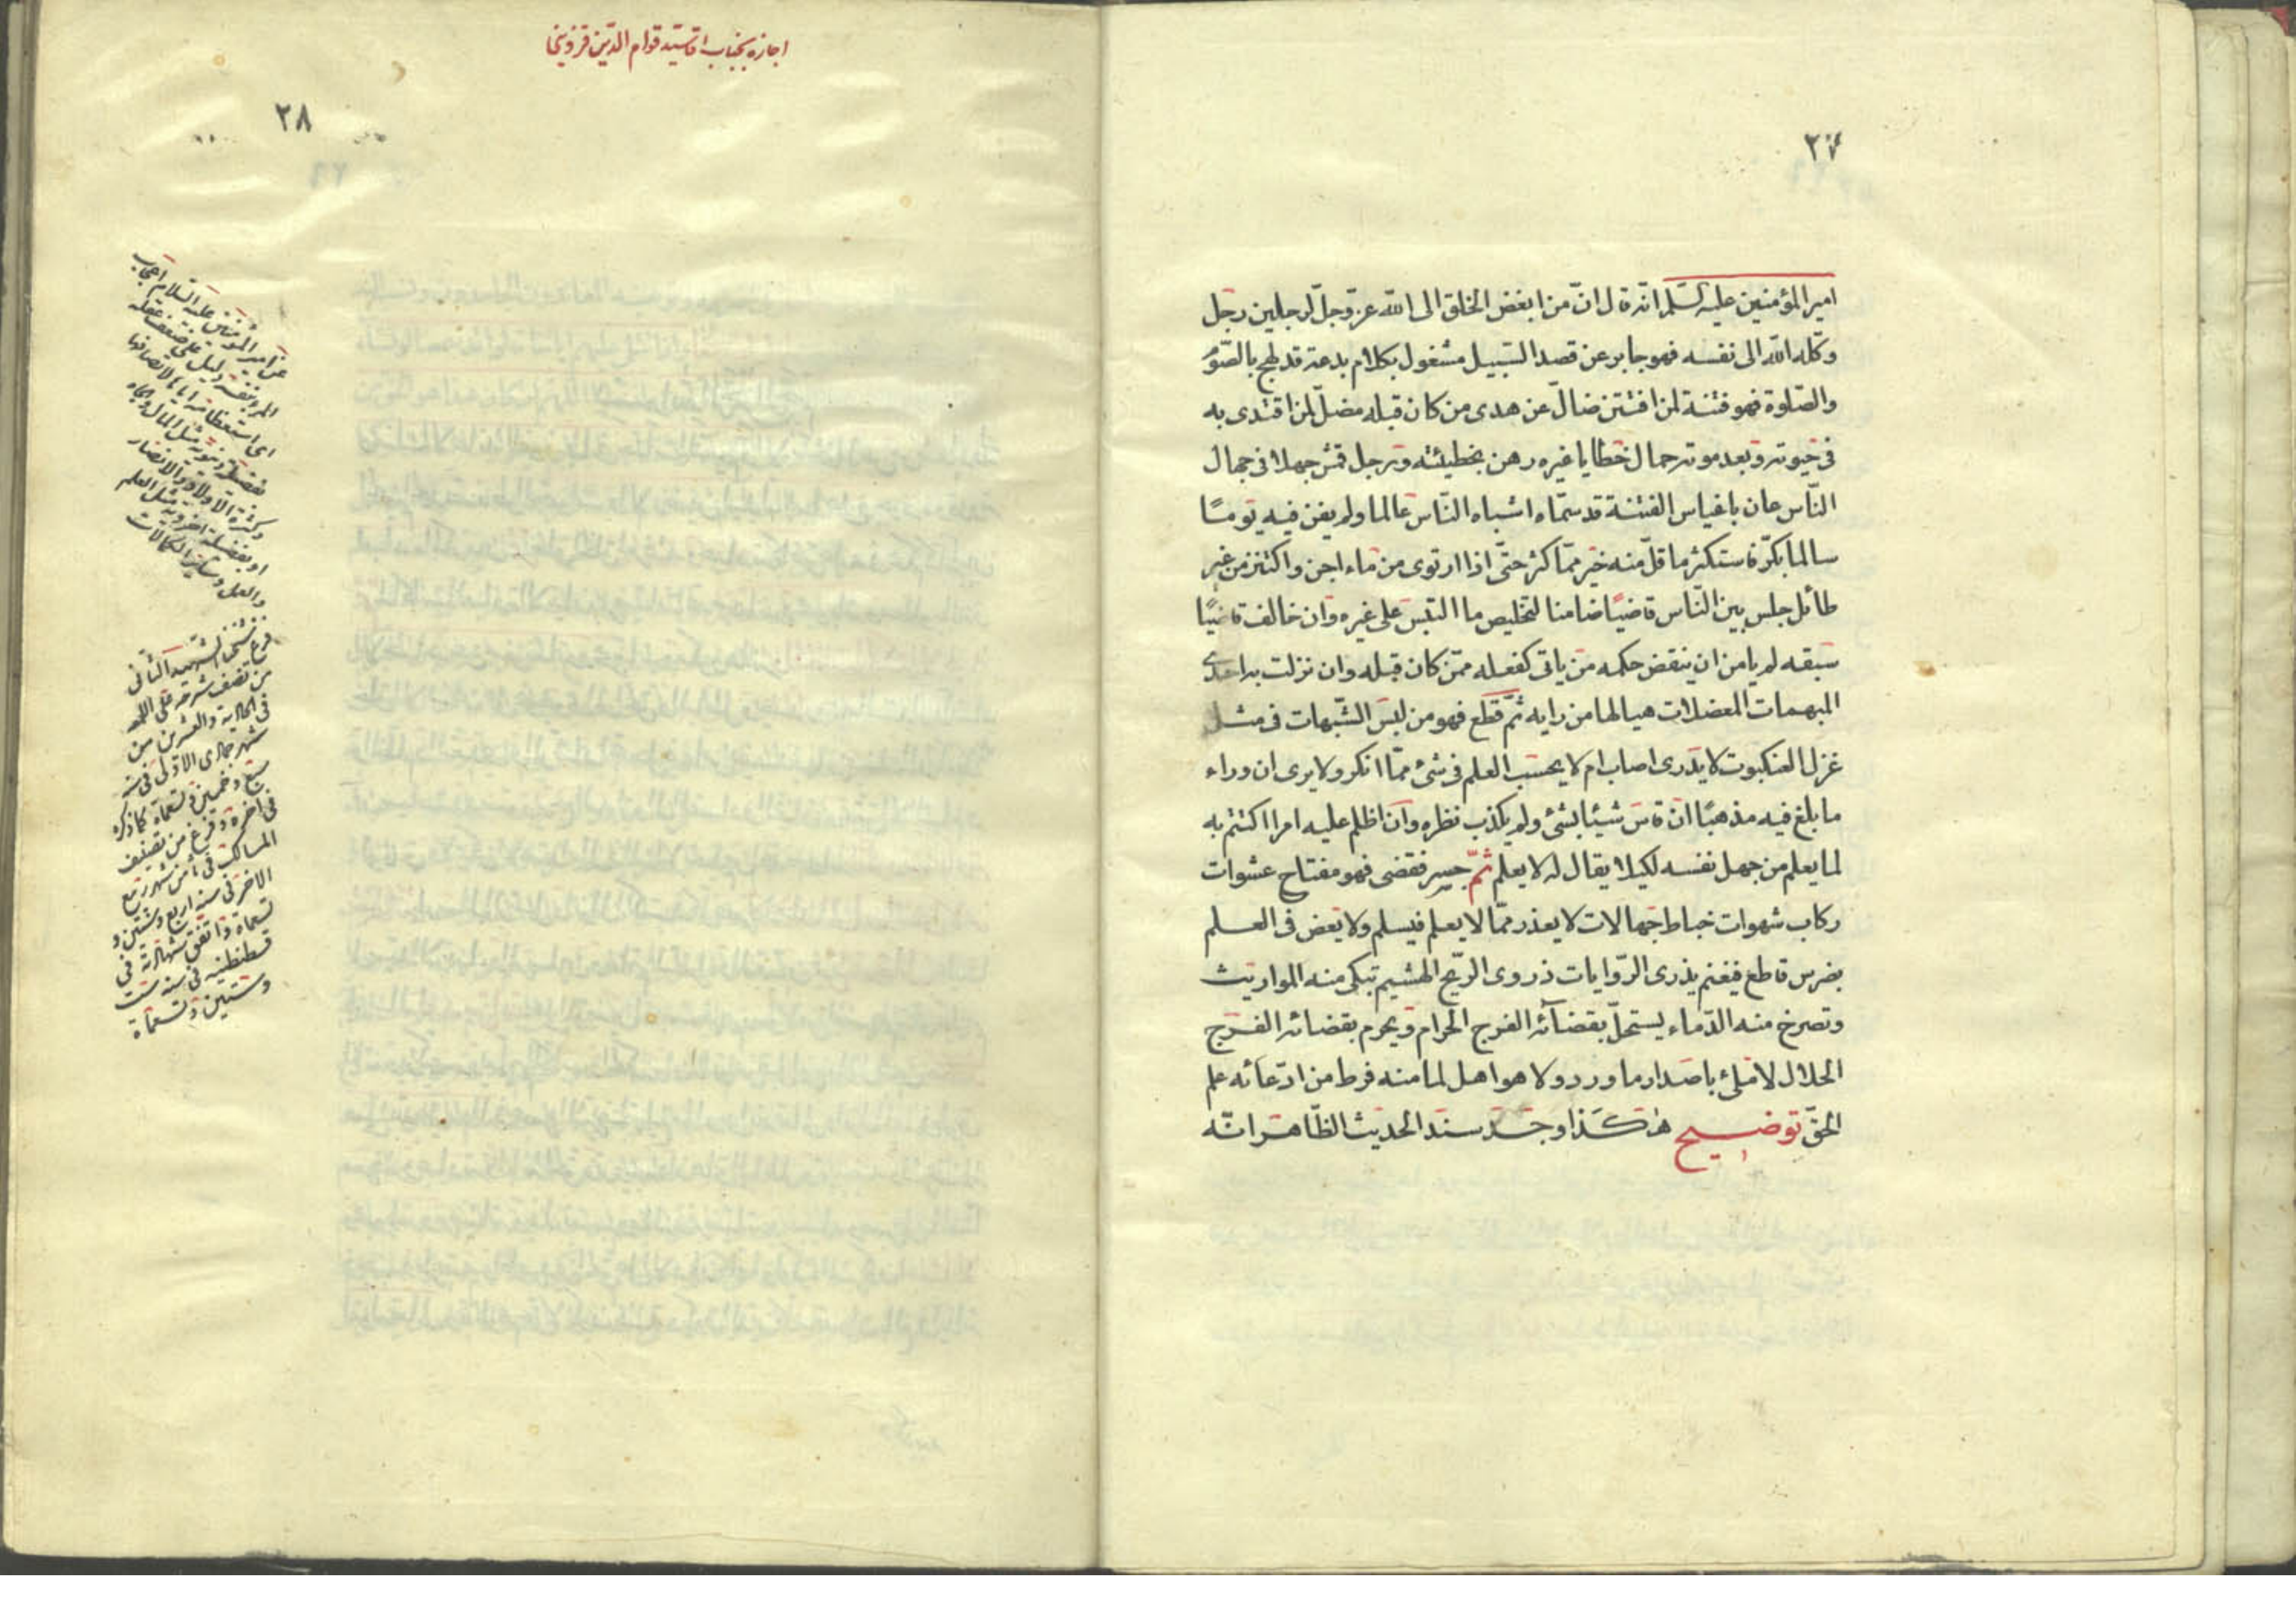 ٢٧
امیرالمؤمنین علیه السّلم انّه قال انّ من ابغض الخلق الی الله عزّوجلّ لرجلین رجل
وکّله الله الی نفسه فهو جابر عن قصد السّبیل مشغول بکلام بدعة قد لهج بالصّوم
والصّلوة فهو فتنة لمن افتتن ضالّ عن هدی من کان قبله مضلّ لمن اقتدی به
فی حیوته وبعد موته حمال خطایا غیره رهن بخطیئته ورجل قمش جهلا فی جهال
النّاس عان باغباس الفتنة قد سمّاه اشباه النّاس عالما ولم یغن فیه یومًا
سالما بکّر فاستکثر ما قلّ منه خیر ممّا کثر حتّی اذا ارتوی من ماء اجن واکتنز من غیر
طائل جلس بین النّاس قاضیًا ضامنا لتخلیص ما التبس علی غیره وان خالف قاضیًا
سبقه لم یامن ان ینقض حکمه من یاتی کفعله ممّن کان قبله وان نزلت به احدی
المبهمات المعضلات هیا لها من رایه ثمّ قطع فهو من لبس الشّبهات فی مثل
غزل العنکبوت لا یدری اصاب ام لا یحسب العلم فی شئ ممّا انکر ولا یری ان وراء
ما بلغ فیه مذهبًا ان قاس شیئا بشئ ولم یکذب نظره وان اظلم علیه امر اکتتم به
لما یعلم من جهل نفسه لکیلا یقال له لا یعلم ثمّ جسر فقضی فهو مفتاح عشوات
رکاب شهوات خباط جهالات لا یعذر ممّا لا یعلم فیسلم ولا یعض فی العلم
بضرس قاطع فیغنم یذری الرّوایات ذرو الرّیح الهشیم تبکی منه المواریث
وتصرخ منه الدّماء یستحلّ بقضآئه الفرج الحرام ویحرم بقضائه الفرج
الحلال لا ملئ باصدار ما ورد ولا هو اهل لما منه فرط من ادّعائه علم
الحقّ توضیح هٰکذا وجد سند الحدیث الظّاهر انّه
اجازه بجناب اقا سیّد قوام الدّین قزوینی
٢٨
عن امیر المؤمنین علیه السّلام اعجاب
المرء بنفسه دلیل علی ضعف عقله
بفضیلة دنیویّة مثل المال والجاه
وکثرة الاولاد والانصار
او بفضیلة اخرویّة مثل العلم
والعمل وسائر الکمالات
فرغ شیخنا الشّهید الثّانی
من تصنیف شرحه علی اللمعه
فی الحادیة والعشرین من
شهر جمادی الاولی فی سنة
سبع وخمسین وتسعمأة کما ذکره
فی اخره وفرغ من تصنیف
المسالک فی ثامن شهر ربیع
الاخر فی سنة اربع وستّین و
تسعمأة واتّفق شهادته فی
قسطنطنیه فی سنة ستّ
وستّین وتسعمأة